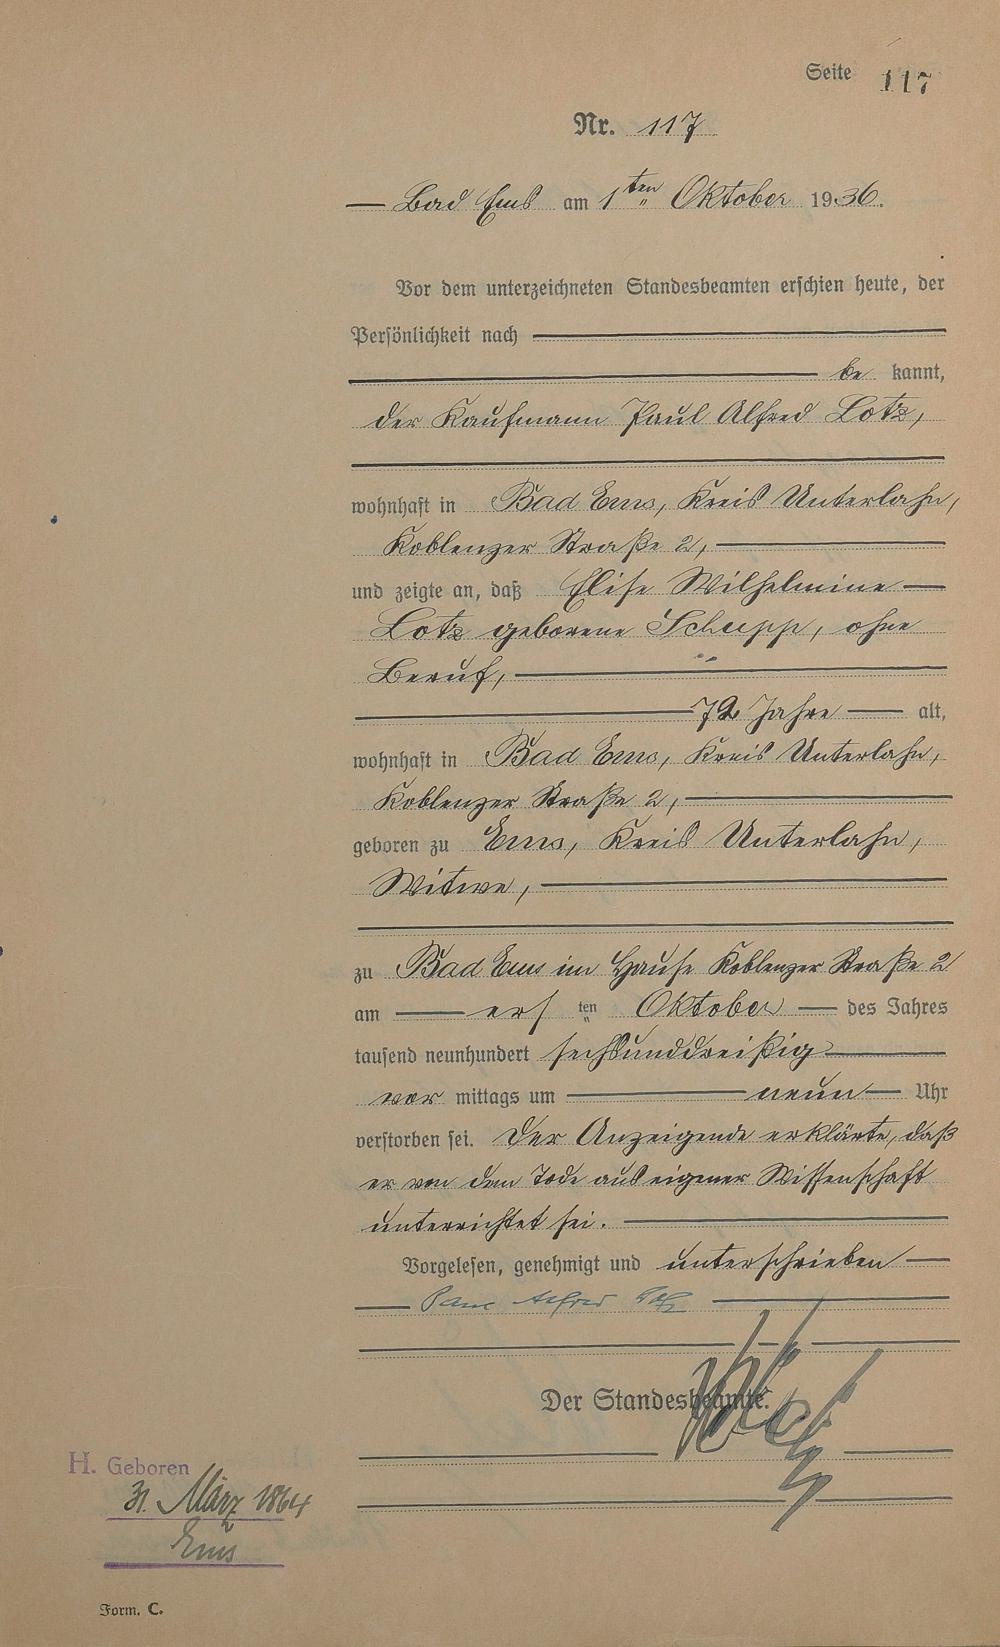 Seite 117
Nr. 117
Bad Ems am 1ten Oktober 1936.
Vor dem unterzeichneten Standesbeamten erschien heute, der
Persönlichkeit nach
be kannt,
der Kaufmann Paul Alfred Lotz,
wohnhaft in Bad Ems, Kreis Unterlahn,
Koblenzer Straße 2,
und zeigte an, daß Elise Wilhelmine
Lotz geborene Schupp, ohne
Beruf,
72 Jahre alt,
wohnhaft in Bad Ems, Kreis Unterlahn,
Koblenzer Straße 2,
geboren zu Ems, Kreis Unterlahn,
Witwe,
zu Bad Ems im Hause Koblenzer Straße 2
am ers ten Oktober des Jahres
tausend neunhundert sechsunddreißig
vor mittags um neun Uhr
verstorben sei. Der Anzeigende erklärte, daß
er von dem Tode aus eigener Wissenschaft
unterrichtet sei.
Vorgelesen, genehmigt und unterschrieben
Paul Alfred Lotz
Der Standesbeamte.
H. Geboren
31. März 1864
Ems
Form. C.